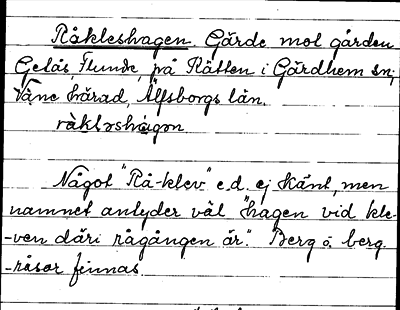 Råkleshagen. Gärde mol gården
Gelås, Flunde, på Rätten i Gärdhem sn;
Väne härad, Älfsborgs län.
råkləshágən
Något "Rå-klev" e.d. ej känt, men
namnet antyder väl "hagen vid kle-
-ven däri rågången är." Berg o. berg
-råsar finnas.